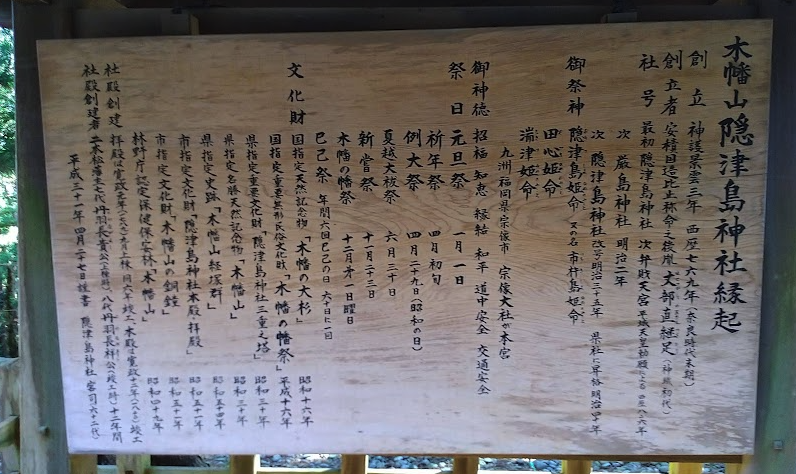 木幡山隠津島神社縁起
創立 神護景雲三年 西歴七六九年(奈良時代末期)
創立者 安積国造比止祢命之後胤 丈部直継足(神職初代)
社号 最初 隠津島神社 次 弁財天宮 平城天皇勅願による 西歴八〇六年
次 厳島神社 明治二年
次 隠津島神社 改号明治三十五年 県社に昇格 明治四十年
御祭神 隠津島姫命 又の名 市杵島姫命
田心姫命
湍津姫命
九州福岡県宗像市 宗像大社が本宮
御神徳 招福 知恵 縁結 和平 道中安全 交通安全
祭日 元旦祭 一月一日
祈年祭 四月初旬
例大祭 四月二十九日(昭和の日)
夏越大祓祭 六月三十日
新嘗祭 十一月二十三日
木幡の幡祭 十二月第一日曜日
巳己祭 年間六回己巳の日 六十日に一回
文化財 国指定天然記念物 「木幡の大杉」 昭和十六年
国指定重要無形民俗文化財「木幡の幡祭」 平成十六年
県指定重要文化財「隠津島神社三重之塔」 昭和三十年
県指定名勝天然記念物「木幡山」 昭和三十年
県指定史跡「木幡山経塚群」 昭和五十四年
市指定文化財「木幡山の銅鐘」 昭和五十一年
市指定文化財「隠津島神社本殿・拝殿」 昭和五十一年
林野庁認定保健保安林「木幡山」 昭和四十九年
社殿創建 拝殿は寛政 上棟 同六年竣工 本殿は寛政十二年 竣工
社殿創建者 二本松藩主七代丹羽長貴公(上棟時)八代丹羽長祥公(竣工時)十二年間
平成三十一年四月二十七日謹書 隠津島神社 宮司(六十二代)